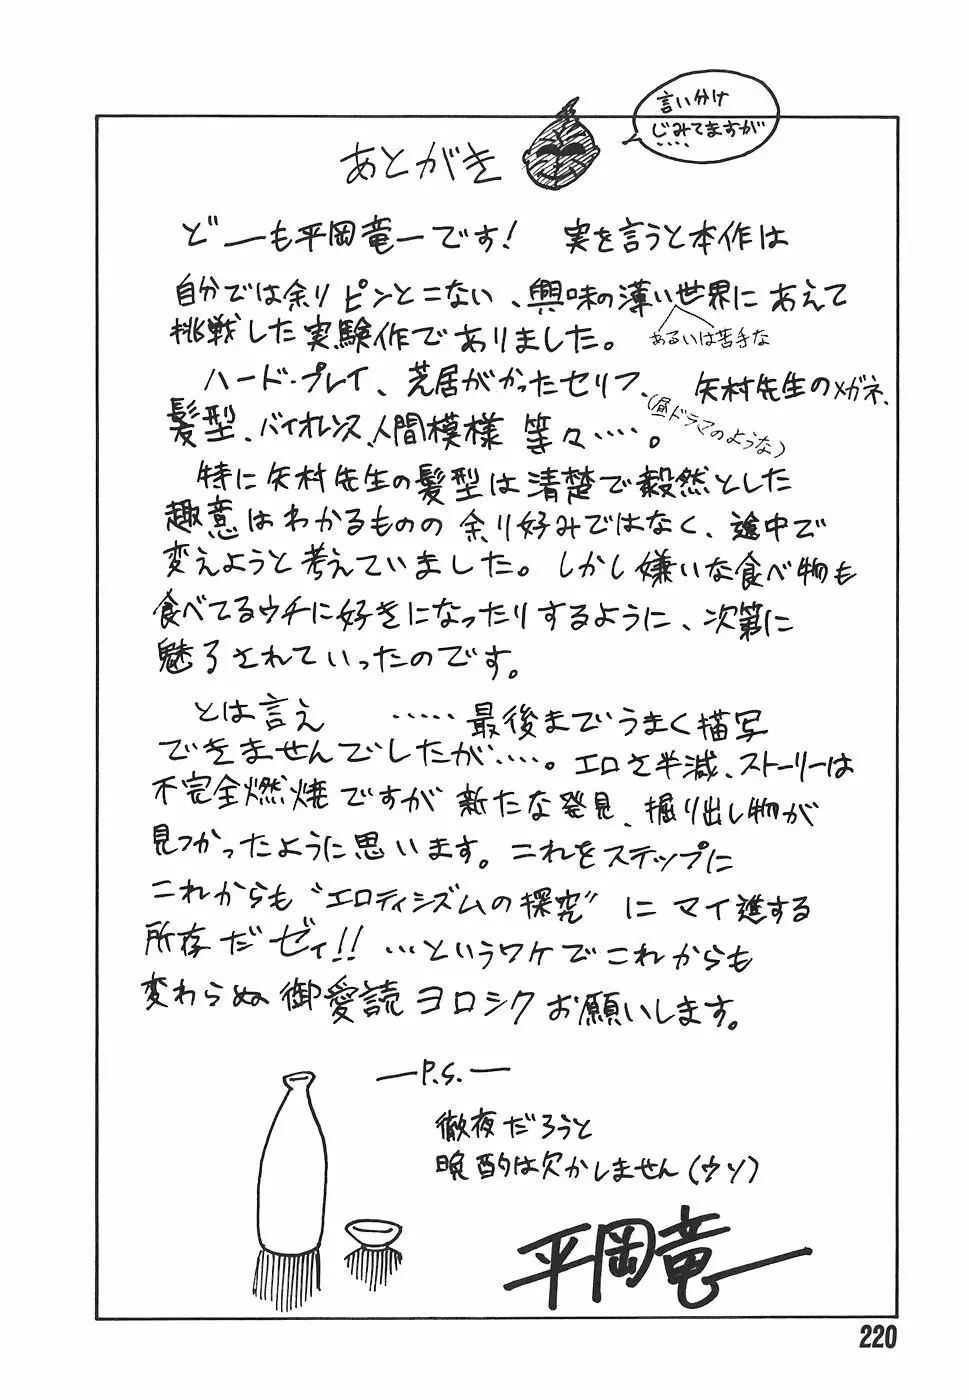 言い分け
じみてますが
‥‥
あとがき
どーも平岡竜一です! 実を言うと本作は
自分では余りピンとこない、興味の薄い世界にあえて
あるいは苦手な
挑戦した実験作でありました。
ハード・プレイ、芝居がかったセリフ、矢村先生のメガネ、
(昼ドラマのような)
髪型、バイオレンス、人間模様 等々‥‥。
特に矢村先生の髪型は清楚で毅然とした
趣意はわかるものの 余り好みではなく、途中で
変えようと考えていました。しかし嫌いな食べ物も
食べてるウチに好きになったりするように、次第に
魅了されていったのです。
とは言え ‥‥‥最後までうまく描写
できませんでしたが‥‥。エロさ半減、ストーリーは
不完全燃焼ですが 新たな発見、掘り出し物が
見つかったように思います。これをステップに
これからも“エロティシズムの探究”にマイ進する
所存だゼィ!! …というワケでこれからも
変わらぬ御愛読ヨロシクお願いします。
―P.S.―
徹夜だろうと
晩酌は欠かしません(ウソ)
平岡竜一
220